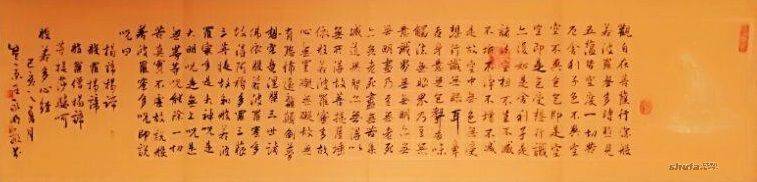 觀自在菩薩行深般
若波羅蜜多時照見
五蘊皆空度一切苦
厄舍利子色不異空
空不異色色即是空
空即是色受想行識
亦復如是舍利子是
諸法空相不生不滅
不垢不淨不增不減
是故空中無色無受
想行識無眼耳鼻
舌身意無色聲香味
觸法無眼界乃至無
意識界無無明亦無
無明盡乃至無老死
亦無老死盡無苦集
滅道無智亦無得以
無所得故菩提薩埵
依般若波羅蜜多故
心無罣礙無罣礙故無
有恐怖遠離顛倒夢
想究竟涅槃三世諸
佛依般若波羅蜜多
故得阿耨多羅三藐
三菩提故知般若波
羅蜜多是大神咒是
大明咒是無上咒是
無等等咒能除一切
苦真實不虛故說般
若波羅蜜多咒即說
咒曰
揭諦揭諦
般羅揭諦
般羅僧揭諦
菩提莎婆呵
般若多心經
己亥八月